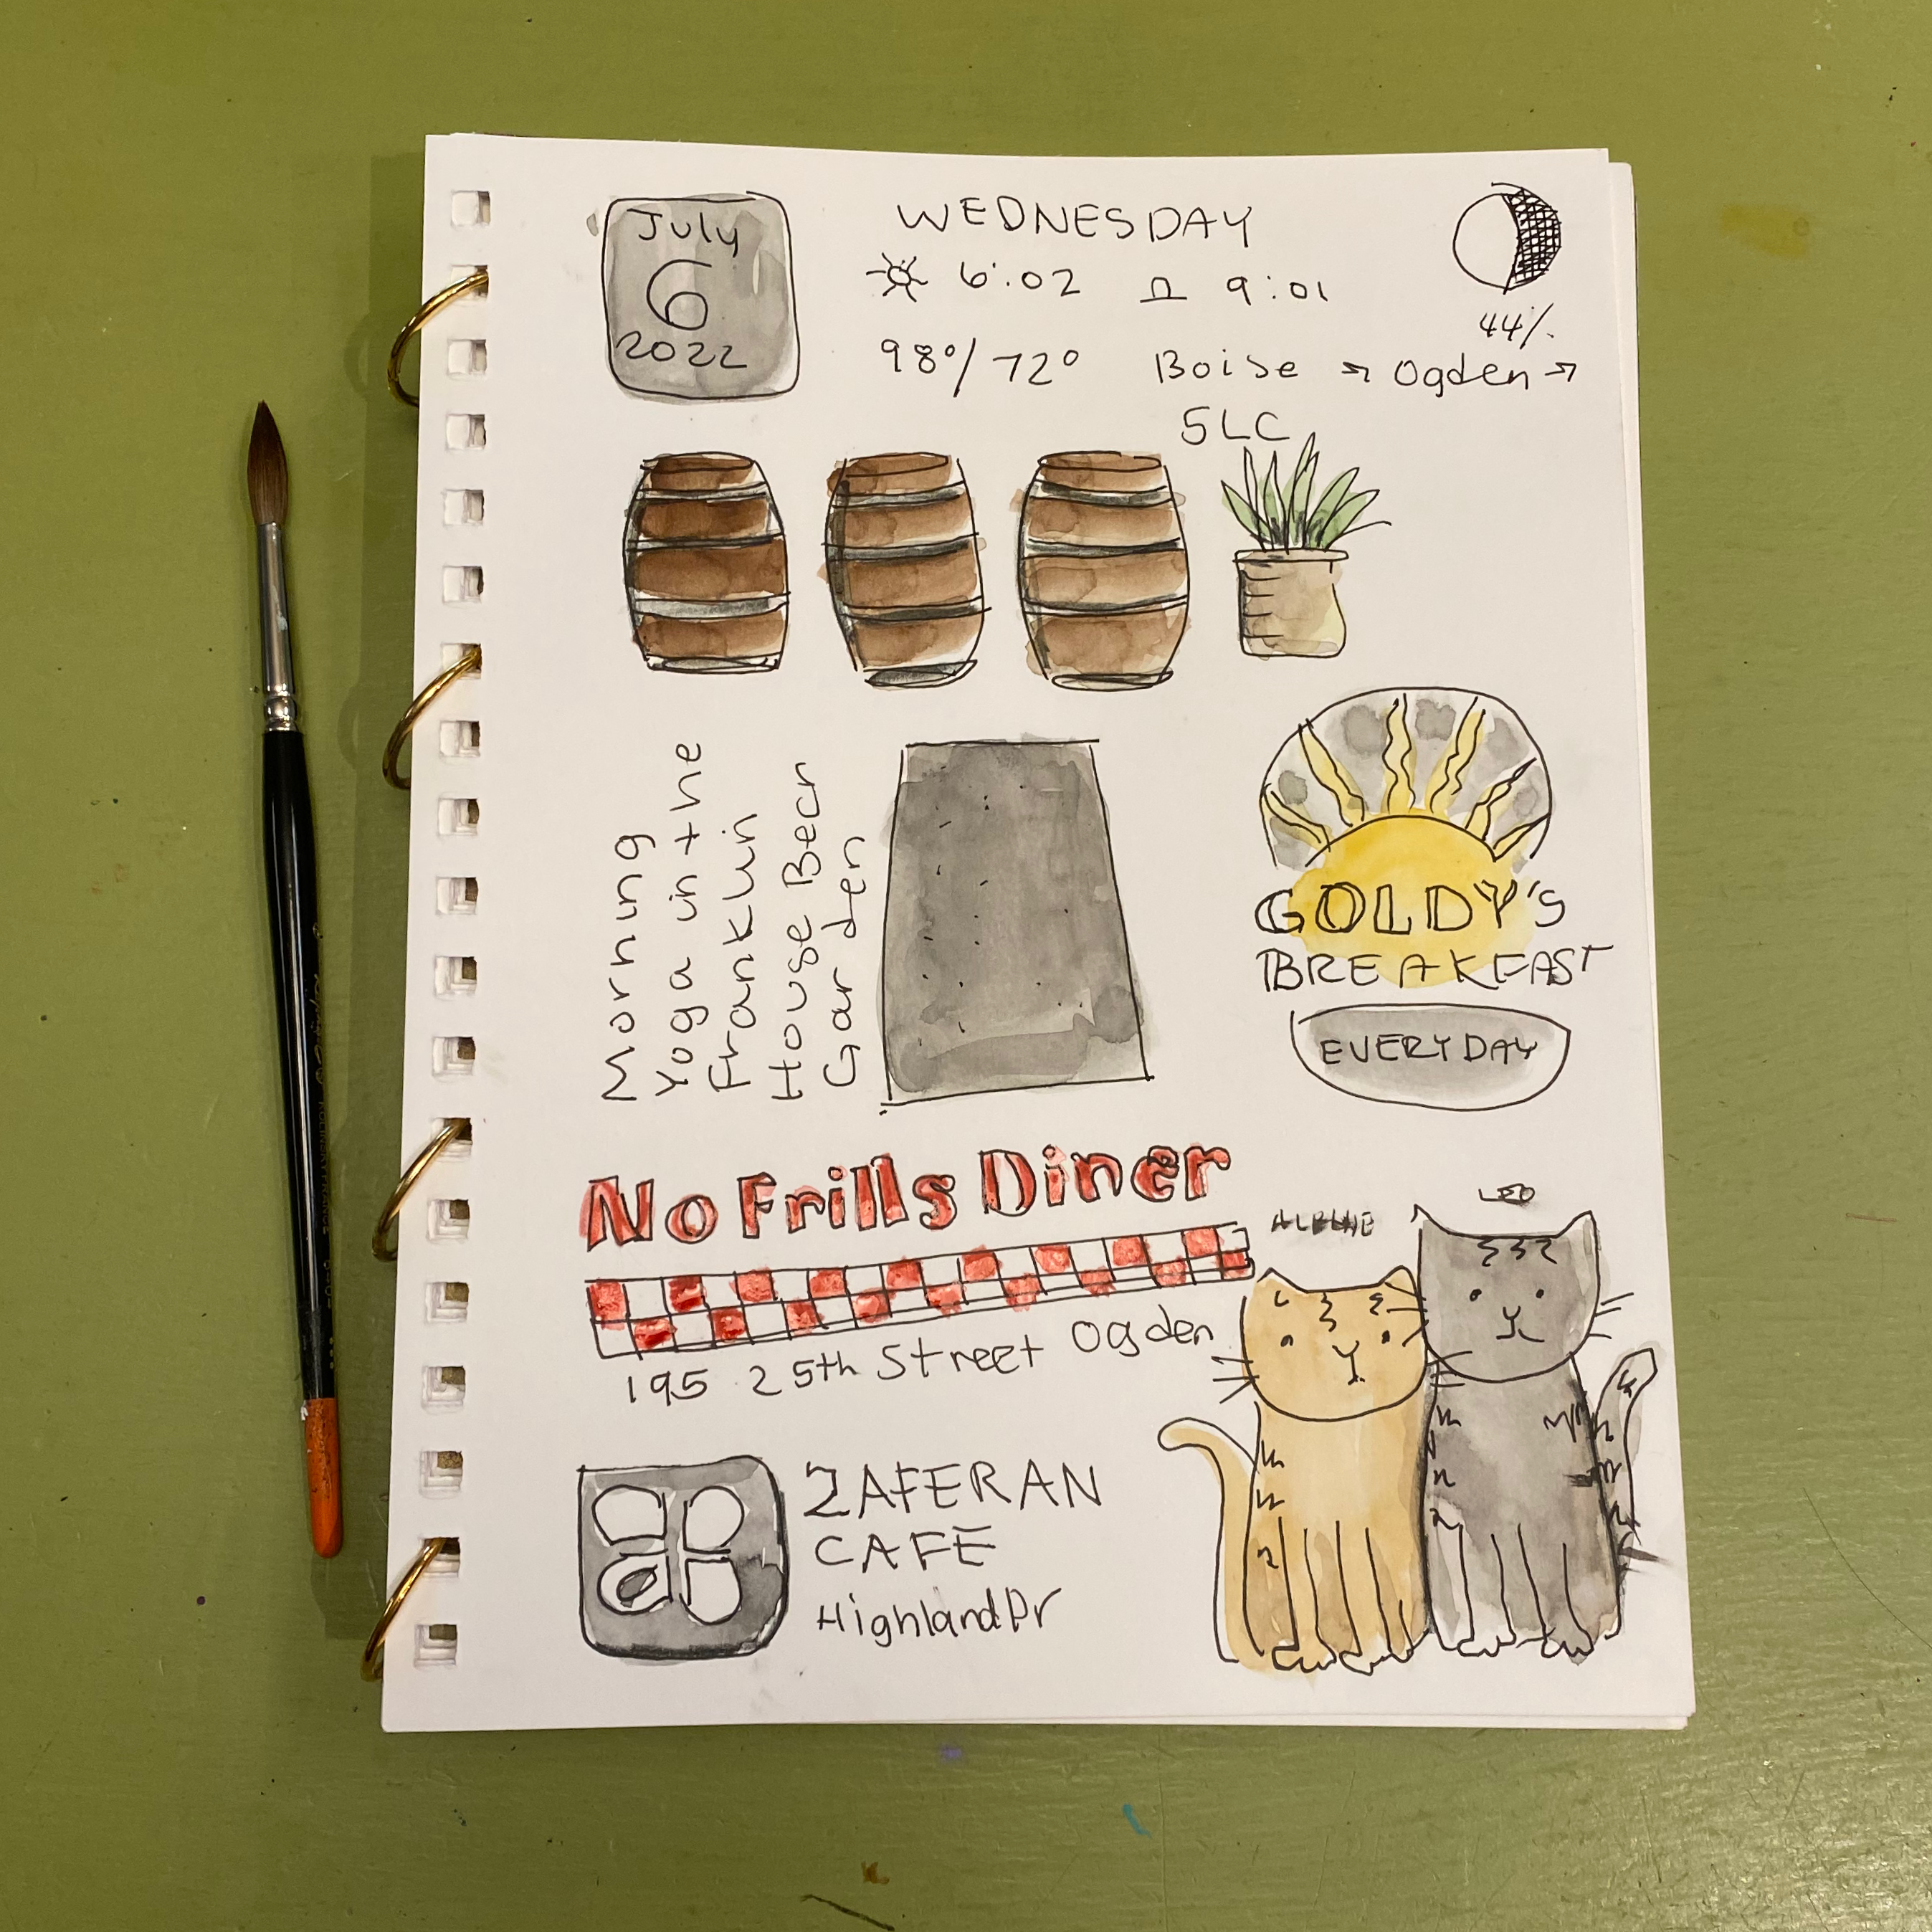 July
6
2022
WEDNESDAY
6:02 9:01
44%
98°/72° Boise → Ogden →
SLC
Morning
Yoga in the
Franklin
House Beer
Garden
GOLDY'S
BREAKFAST
EVERYDAY
No Frills Diner
195 25th Street Ogden
LEO
ZAFERAN
CAFE
Highland Dr